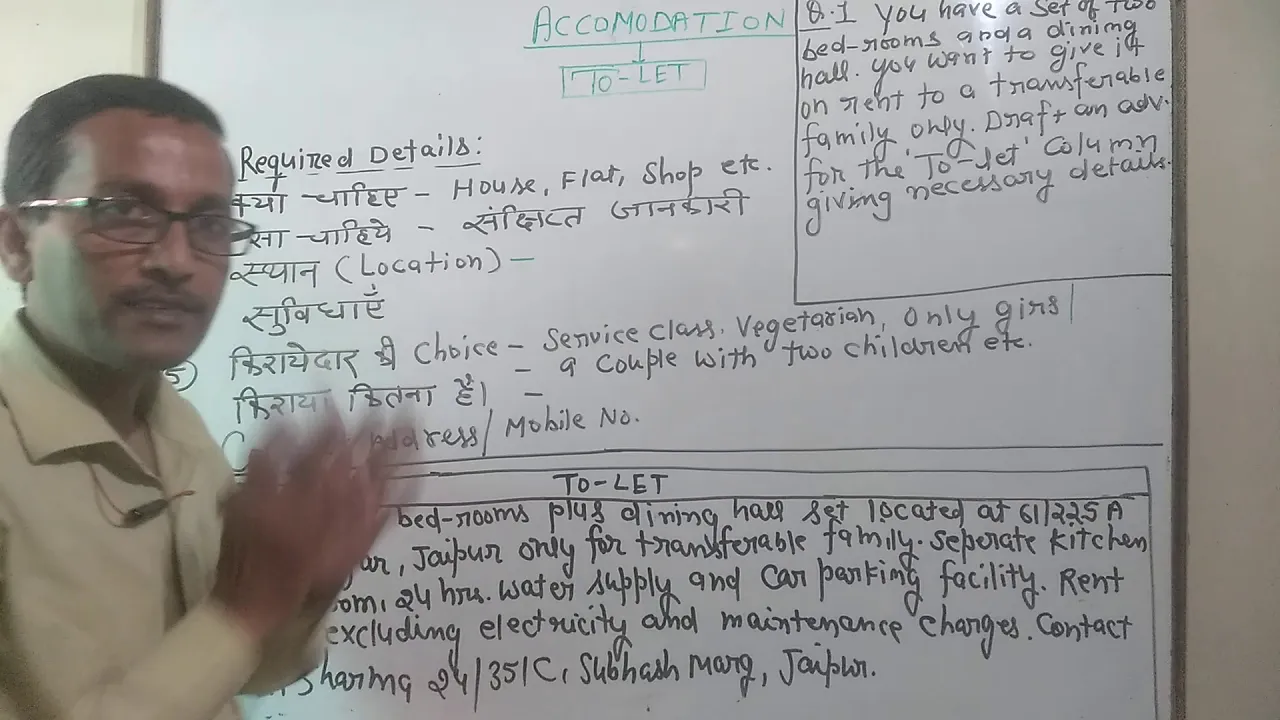 ACCOMODATION
TO-LET
Q.1 You have a set of two
bed-rooms and a dining
hall. You want to give it
on rent to a transferable
family only. Draft an adv.
for the 'To-let' Column
giving necessary details.
Required Details:
क्या चाहिए - House, Flat, Shop etc.
सा चाहिये - संक्षिप्त जानकारी
स्थान (Location) -
सुविधाएँ
5) किरायेदार की Choice - Service class, Vegetarian, only girs/
- a couple with two children etc.
किराया कितना है। -
Address/ Mobile No.
TO-LET
bed-rooms plus dining hall set located at 61/225A
ar, Jaipur only for transferable family. Seperate kitchen
oom, 24 hrs. water supply and car parking facility. Rent
excluding electricity and maintenance charges. Contact
Sharma 24/35/C, Subhash Marg, Jaipur.